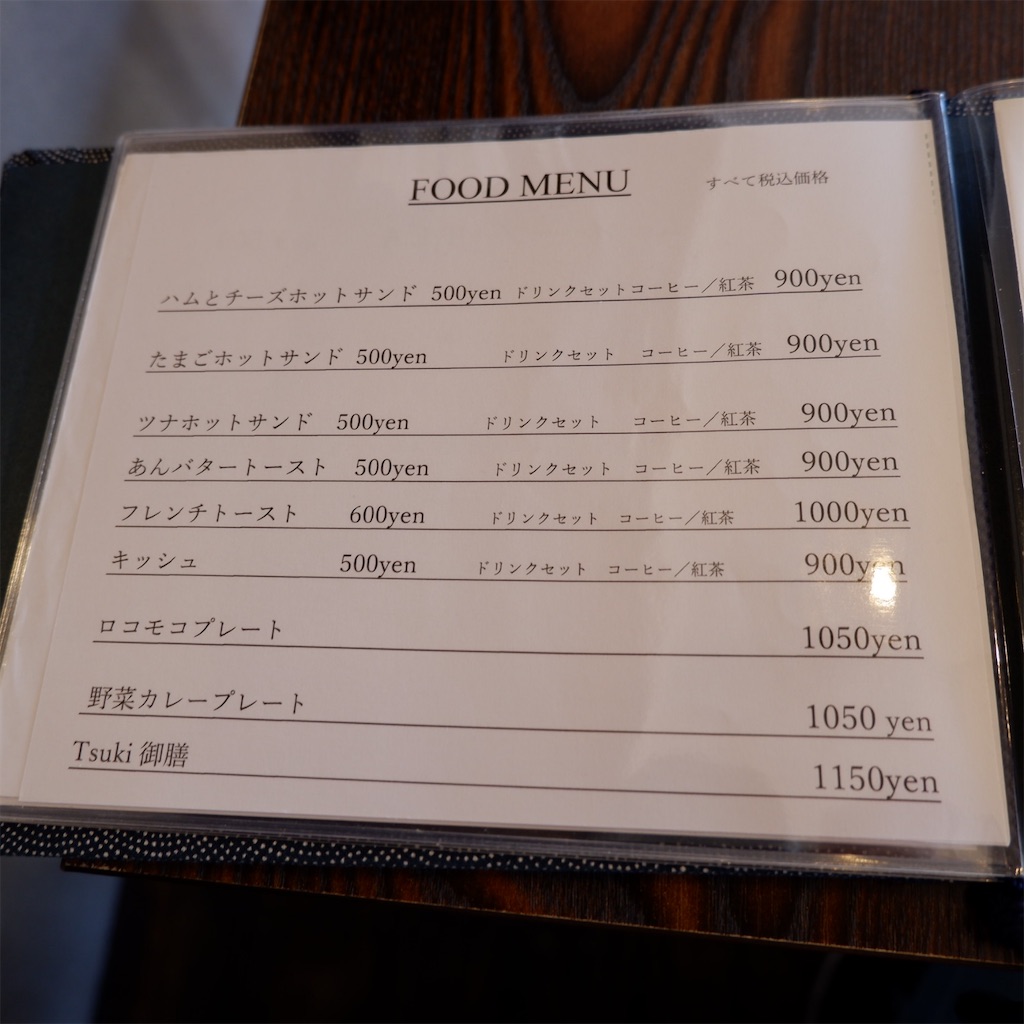 FOOD MENU すべて税込価格
ハムとチーズホットサンド 500yen ドリンクセットコーヒー／紅茶 900yen
たまごホットサンド 500yen ドリンクセット コーヒー／紅茶 900yen
ツナホットサンド 500yen ドリンクセット コーヒー／紅茶 900yen
あんバタートースト 500yen ドリンクセット コーヒー／紅茶 900yen
フレンチトースト 600yen ドリンクセット コーヒー／紅茶 1000yen
キッシュ 500yen ドリンクセット コーヒー／紅茶 900yen
ロコモコプレート 1050yen
野菜カレープレート 1050 yen
Tsuki 御膳 1150yen